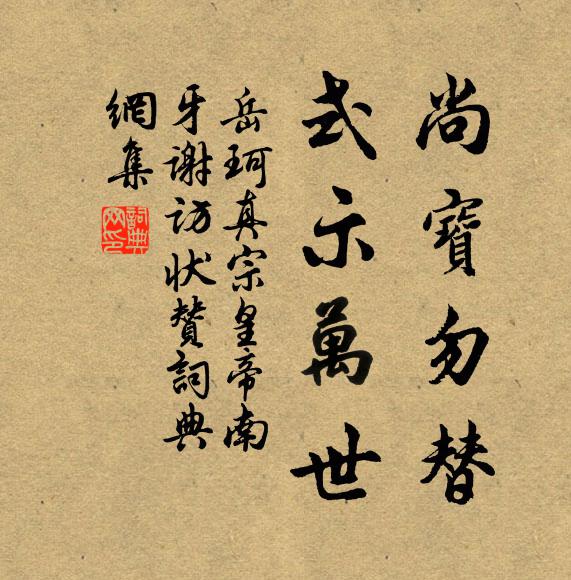 尚寶勿替
式示萬世
岳珂真宗皇帝南
牙謝訪狀贊詞典
網集
詞典网印